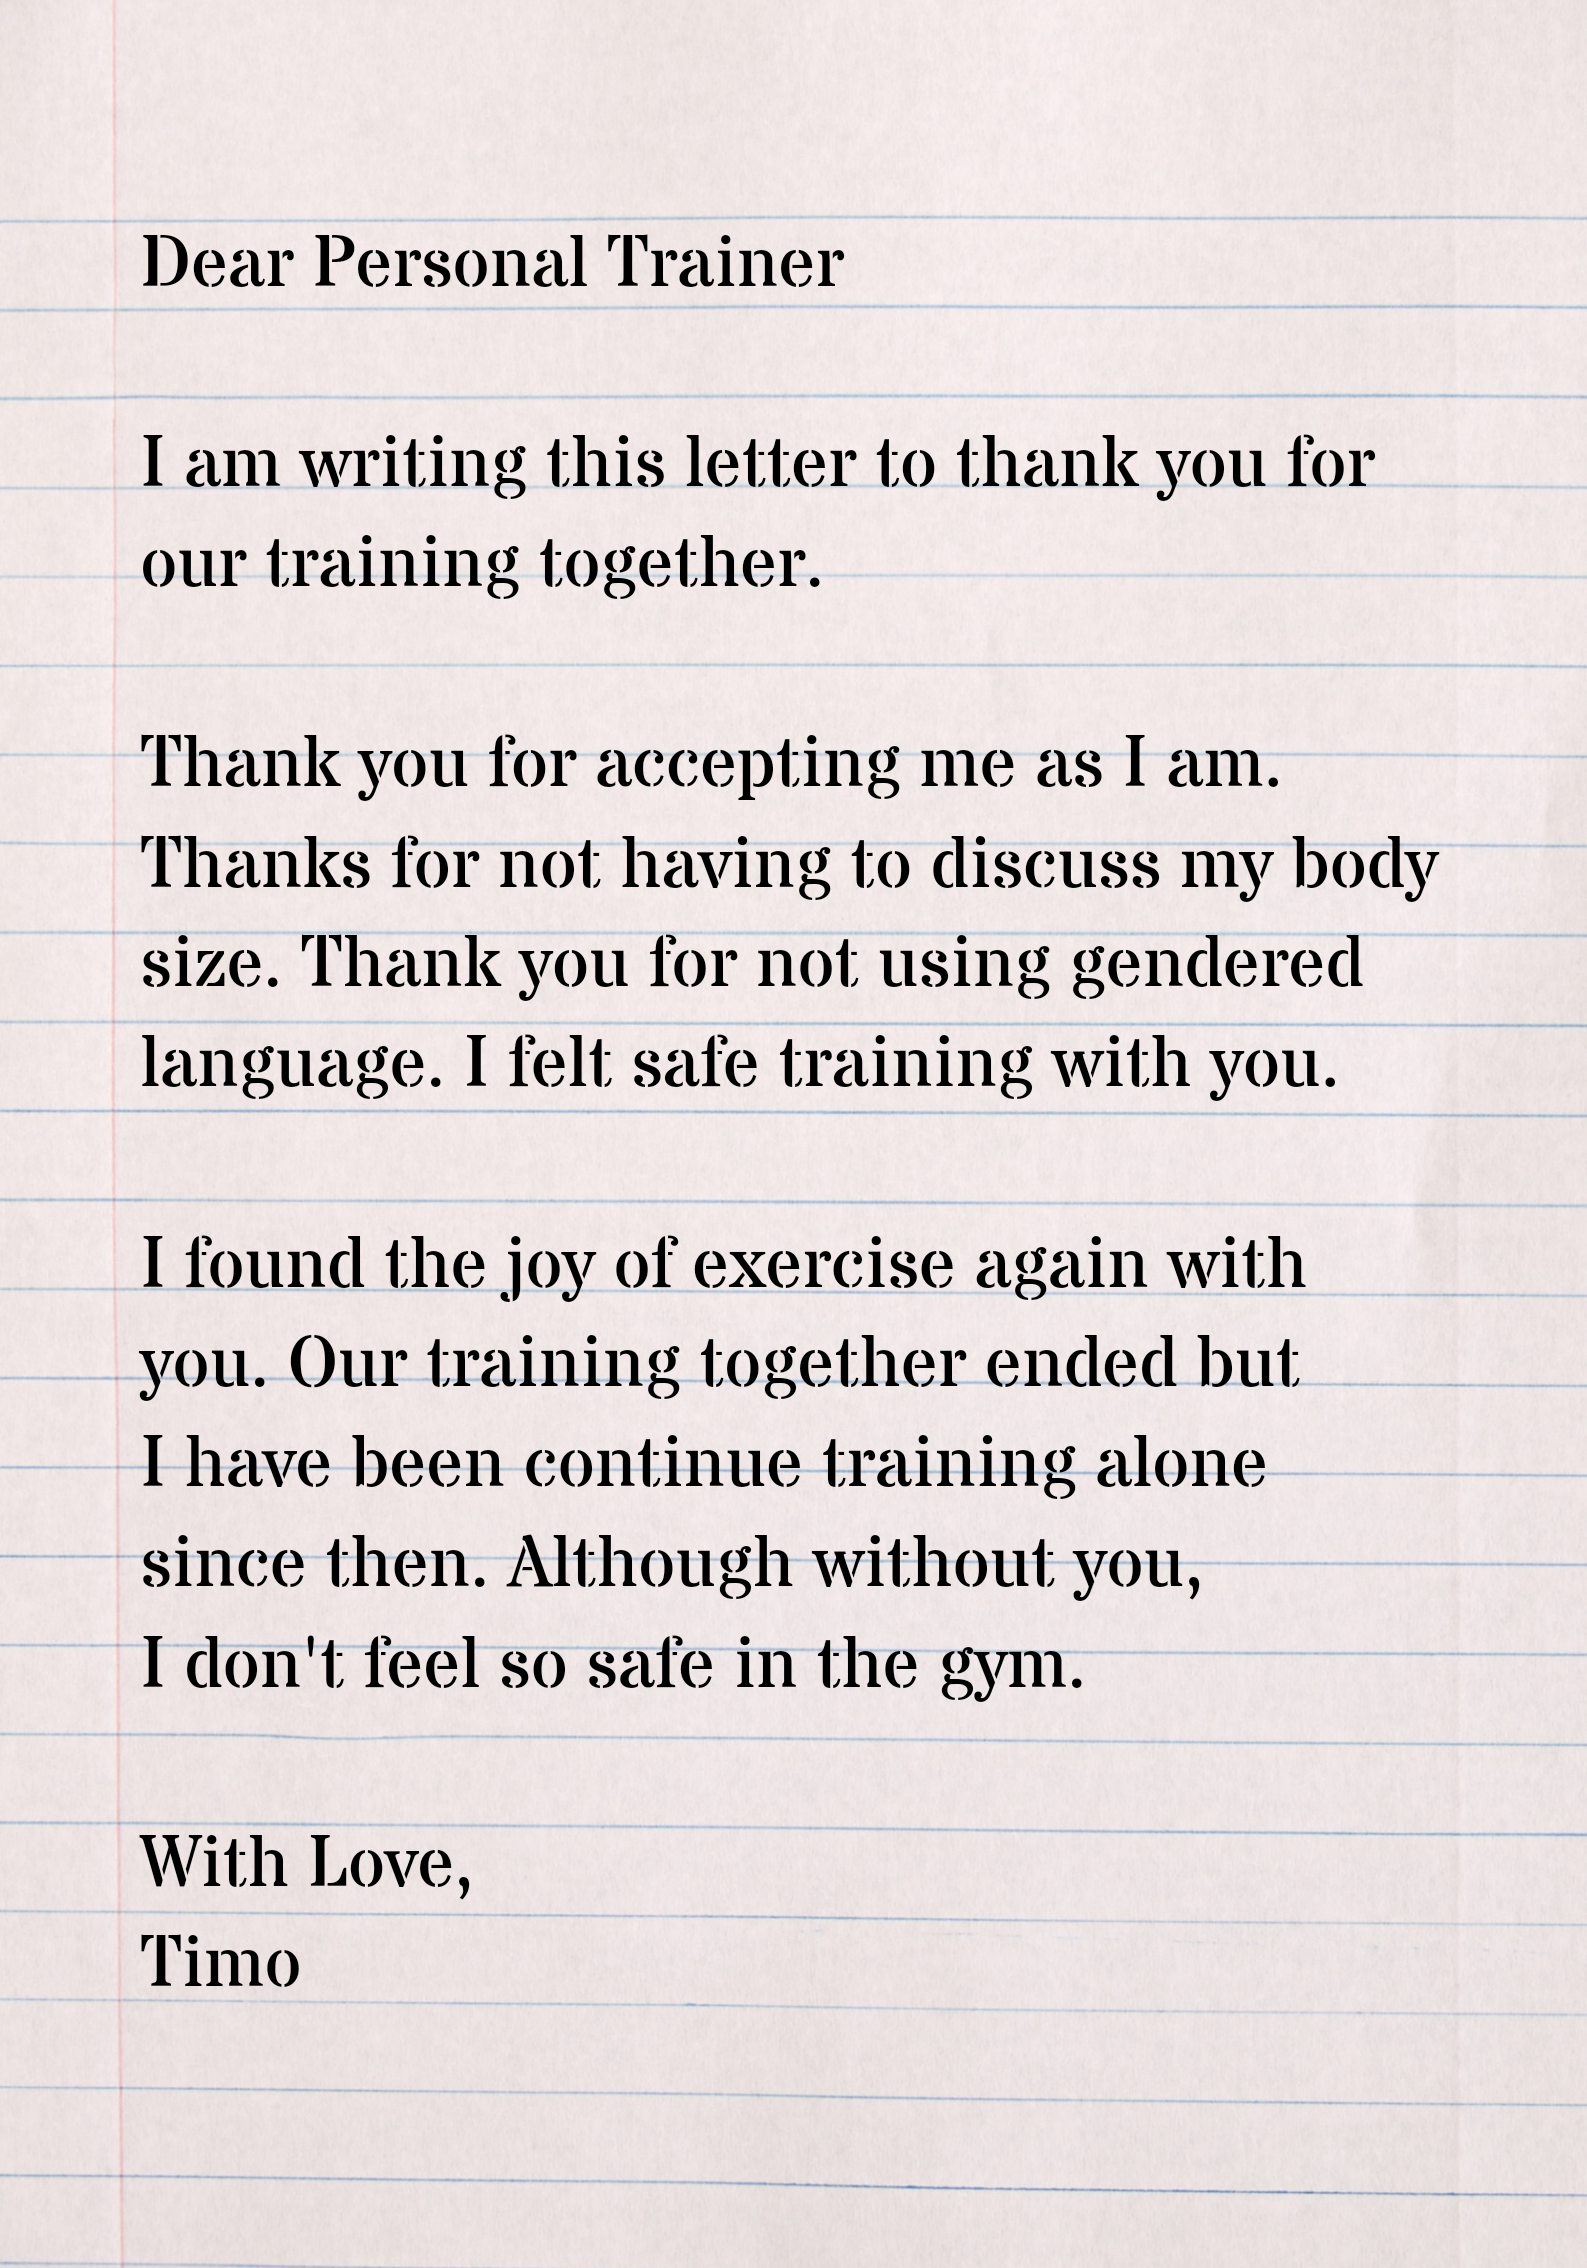 Dear Personal Trainer
I am writing this letter to thank you for
our training together.
Thank you for accepting me as I am.
Thanks for not having to discuss my body
size. Thank you for not using gendered
language. I felt safe training with you.
I found the joy of exercise again with
you. Our training together ended but
I have been continue training alone
since then. Although without you,
I don't feel so safe in the gym.
With Love,
Timo